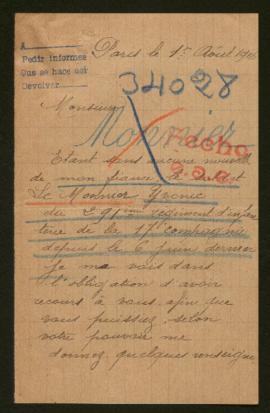 A
Pedir informes
Que se hace ser
Devolver
Paris le 1er Août 19
34028
Monsieur
Monnier
Fecho
Etant sans aucune nouvelle
de mon fiancé le soldat
Le Monnier Yvonic
du 291eme régiment d'infan
terie de la 17e compagnie
depuis le 6 juin dernier
je me vois dans
l'obligation d'avoir
recours à vous, afin que
vous puissiez, selon
votre pouvoir me
donner quelques renseigne